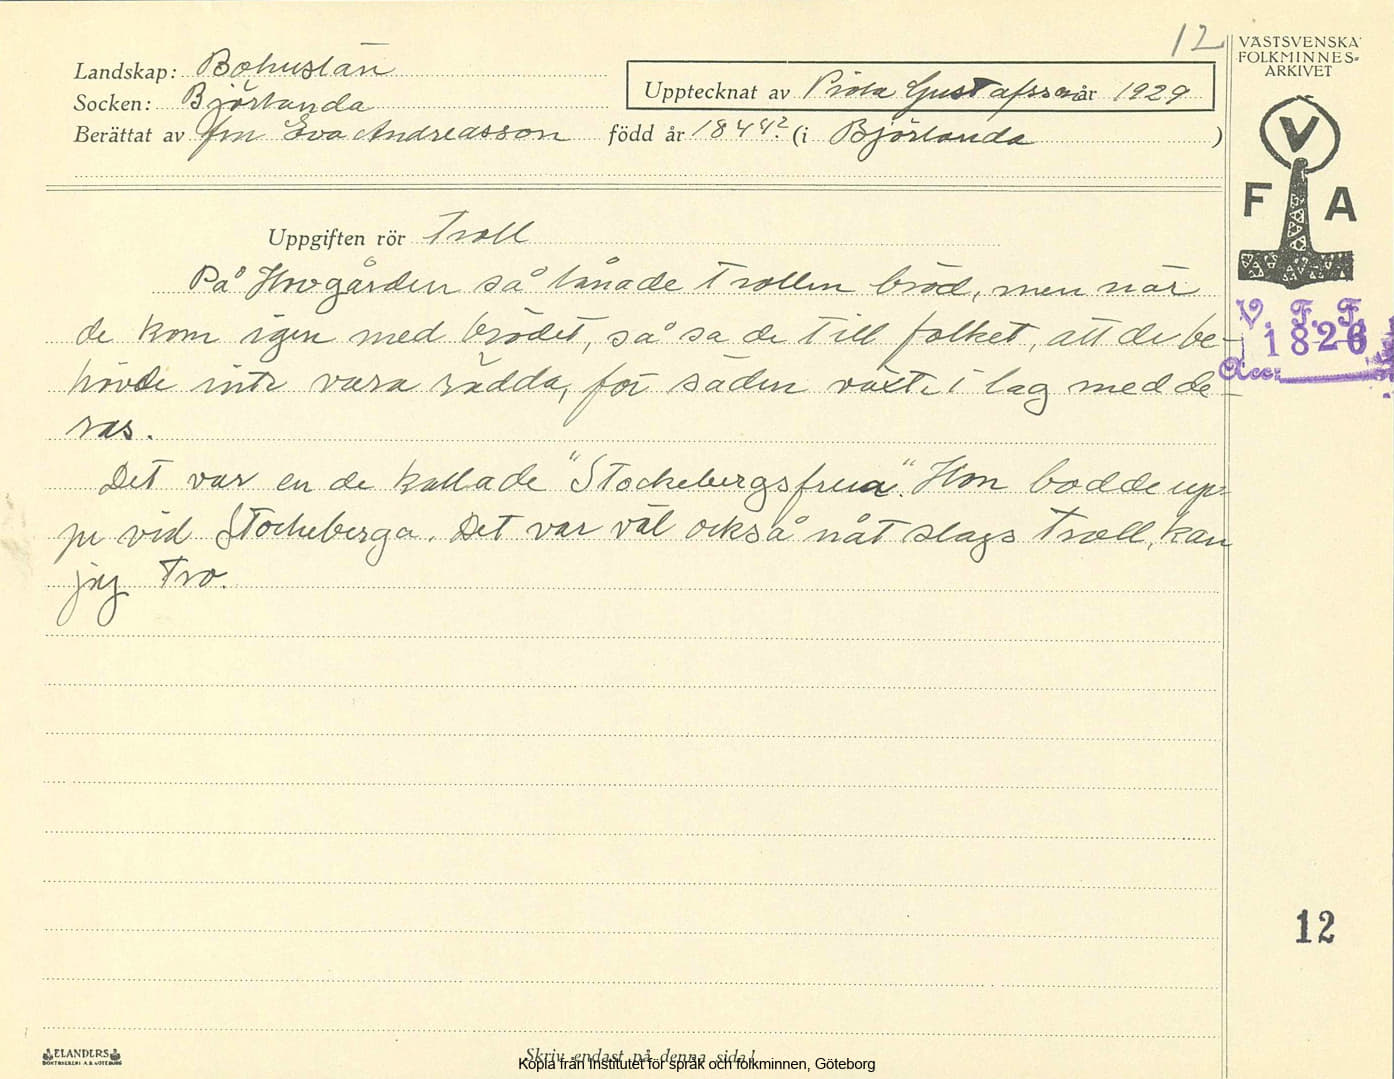 12
VÄSTSVENSKA
FOLKMINNES-
ARKIVET
Landskap: Bohuslän
Socken: Björlanda
Upptecknat av Gustafsson år 1929
Berättat av Eva Andreasson född år 1844? (i Björlanda )
V
F A
Uppgiften rör Troll
På Hovgården så lånade trollen bröd, men när
de kom igen med brödet, så sa de till folket, att de be-
hövde inte vara rädda, för säden växte i lag med de-
ras.
Det var en de kallade "Stockebergsfrua". Hon bodde up-
pe vid Stockeberga. Det var väl också nåt slags troll, kan
jag tro.
V. F. F.
1826
Acc:
12
ELANDERS
BOKTRYCKERI A.B. GÖTEBORG
Skriv endast på denna sida!
Kopia från Institutet för språk och folkminnen, Göteborg